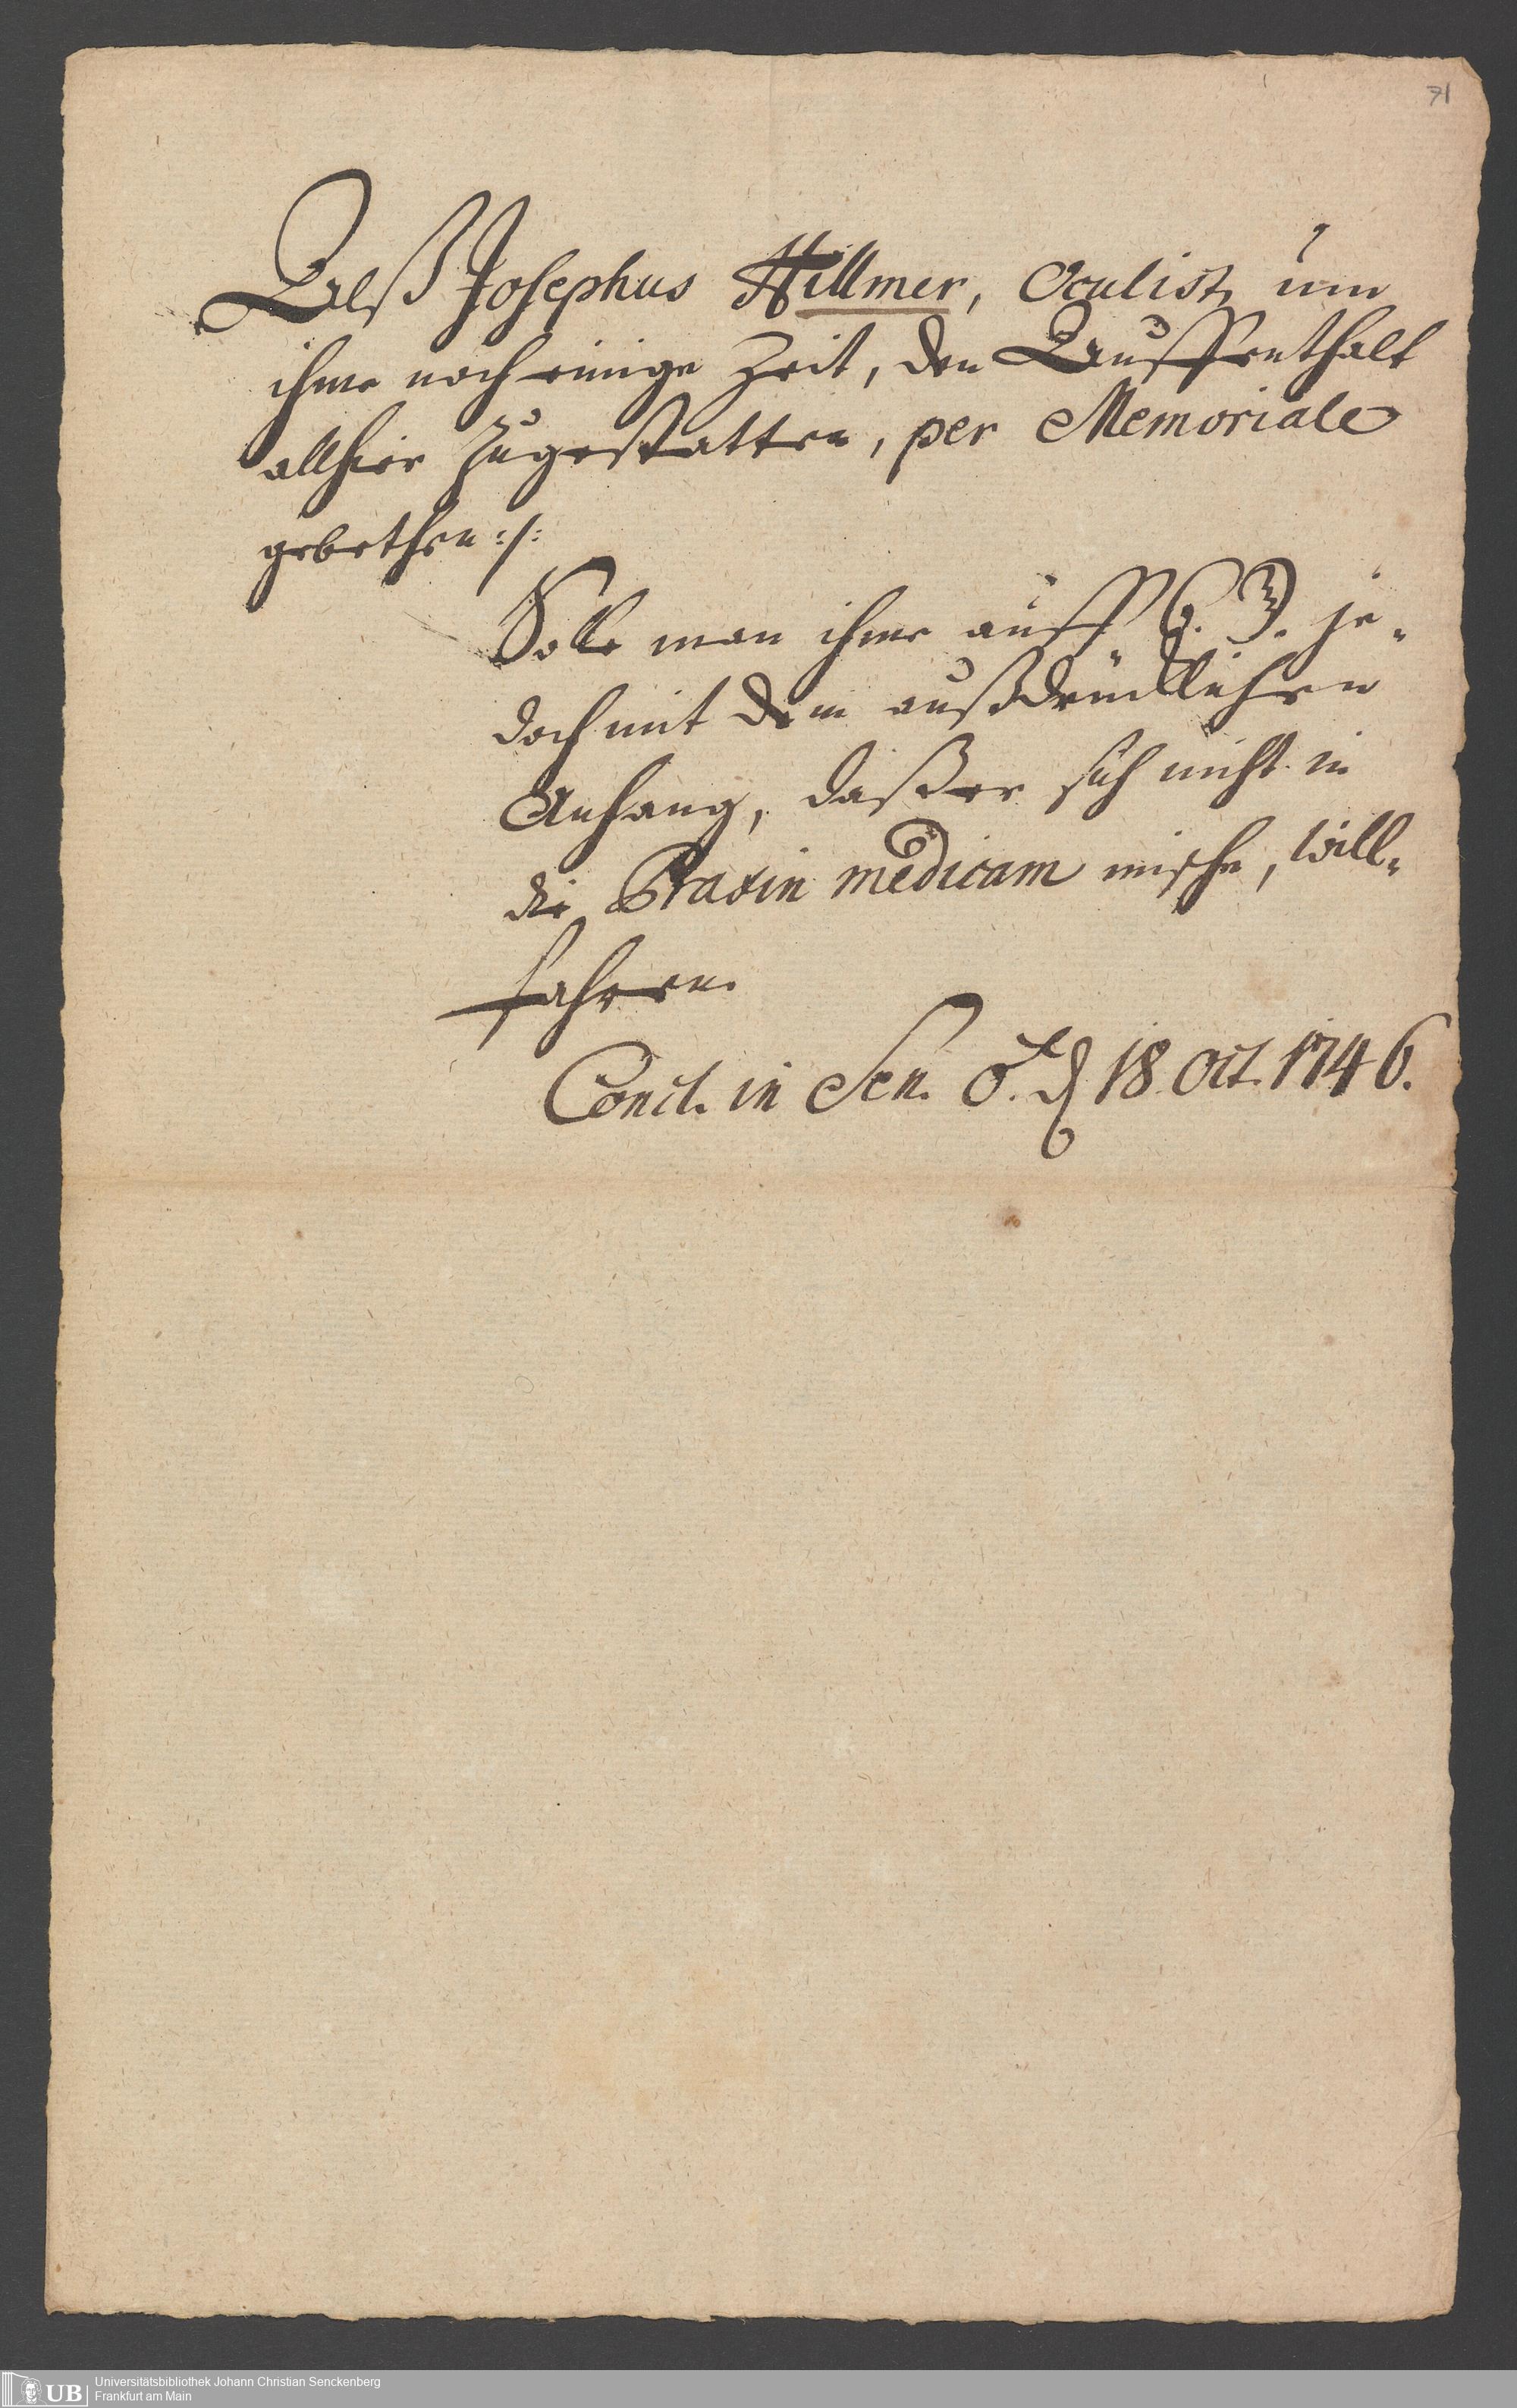 71
Alß Josephus Hillmer, Oculist, um
ihme noch einige Zeit, den Auffenthalt
allhier zugestatten, per Memoriale
gebethen :/:
Solle man ihme auff 8. T. je-
doch mit dem außdrücklichen
Anhang, daß er sich nicht in
die Praxin medicam mische, will-
fahren.
Concl. in Sen. d. 18. Oct. 1746.
UB Universitätsbibliothek Johann Christian Senckenberg
Frankfurt am Main